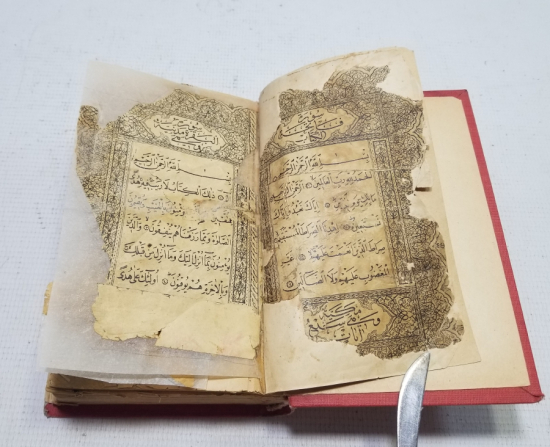 سورة
فاتحة
الكتاب
بسم الله الرحمن الرحيم
الحمد لله رب العالمين الرحمن الرحيم
مالك يوم الدين اياك نعبد واياك
نستعين اهدنا الصراط المستقيم
صراط الذين انعمت عليهم غير
المغضوب عليهم ولا الضالين
مكية
وهي سبع
آيات
البقرة
بسم الله الرحمن الرحيم
ذلك الكتاب لا ريب فيه هدى
الصلوة ومما رزقناهم ينفقون والذين
يؤمنون بما انزل اليك وما انزل من قبلك
وبالآخرة هم يوقنون اولئك على هدى